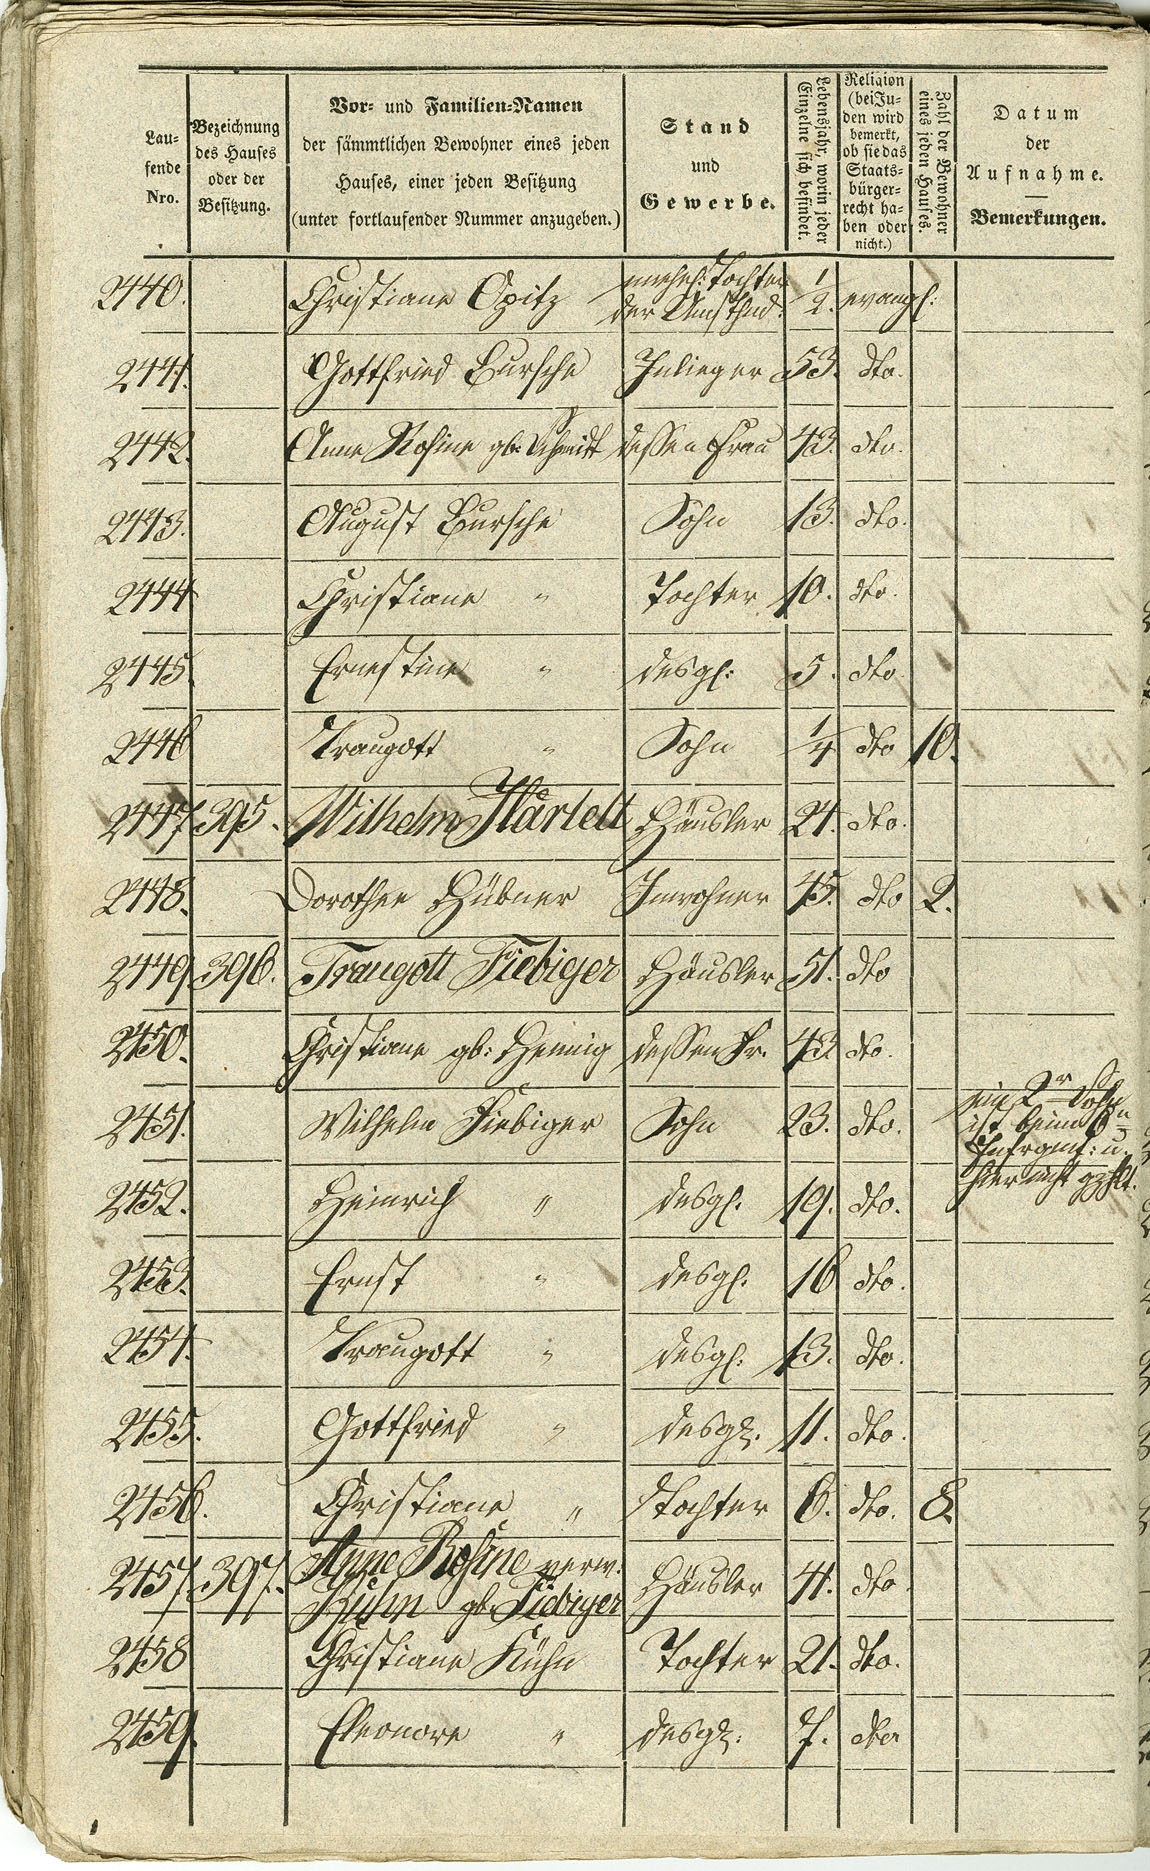 Lau-
fende
Nro.
Bezeichnung
des Hauses
oder der
Besitzung.
Vor- und Familien-Namen
der sämmtlichen Bewohner eines jeden
Hauses, einer jeden Besitzung
(unter fortlaufender Nummer anzugeben.)
Stand
und
Gewerbe.
Lebensjahr, worin jeder
Einzelne sich befindet.
Religion
(bei Ju-
den wird
bemerkt,
ob sie das
Staats-
bürger-
recht ha-
ben oder
nicht.)
Zahl der Bewohner
eines jeden Hauses.
Datum
der
Aufnahme.
Bemerkungen.
unehel: Tochter
2440. Christiane Opitz der 1/2. evangl:
2441. Gottfried Bursche Inlieger 53. dto.
2442. Anne Rosine gb: Schmidt dessen Frau 43. dto.
2443. August Bursche Sohn 13. dto.
2444 Christiane " Tochter 10. dto.
2445. Ernestine " desgl: 5. dto
2446 Traugott " Sohn 1/4 dto 10.
2447 395. Wilhelm Härtelt Häusler 24. dto.
2448. Dorothee Hübner Inwohner 45. dto 2.
2449 396. Traugott Fiebiger Häusler 51. dto
2450. Christiane gb: Hennig dessen Fr. 43 dto.
2451. Wilhelm Fiebiger Sohn 23. dto.
ein 2r Sohn
ist beim 6n
Inf rgmt: u.
hier nicht gezhlt.
2452. Heinrich " desgl. 19. dto.
2453. Ernst " desgl. 16 dto.
2454. Traugott " desgl. 13. dto.
2455. Gottfried " desgl. 11. dto.
2456. Christiane " Tochter 6. dto. 8.
2457. 397. Anne Rosine verw:
Kühn gb. Fiebiger Häusler 41. dto
2458 Christiane Kühn Tochter 21. dto.
2459. Eleonore " desgl: 7. dto